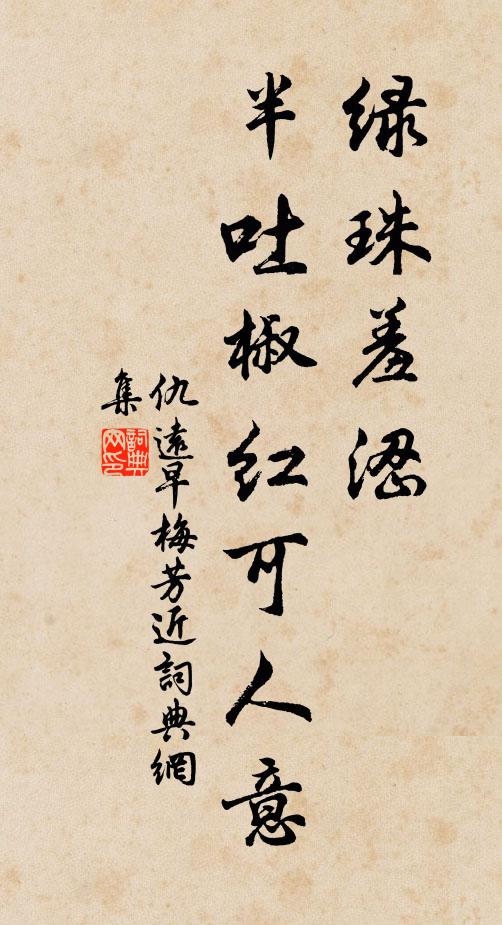 绿珠羞涩
半吐椒红可人意
仇遠早梅芳近詞典網
集
詞典网印